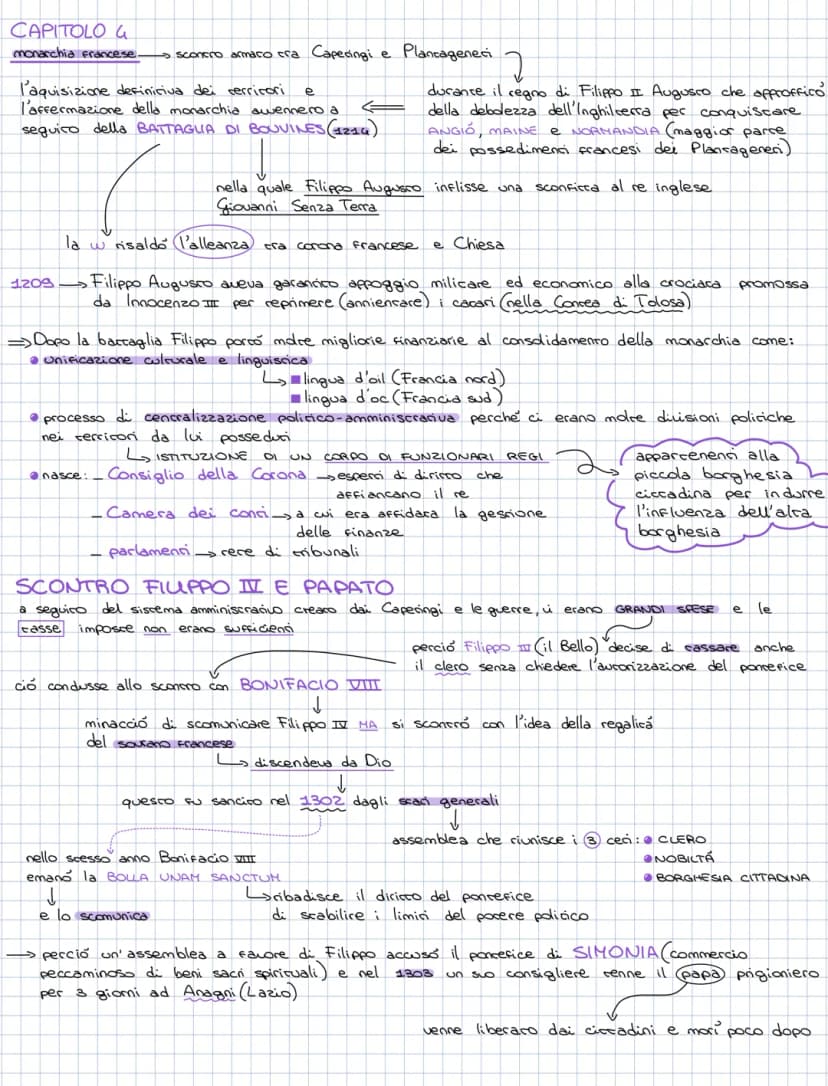 CAPITOLO 4
monarchia francese → scontro armato tra Capetingi e Plantageneti
durante il regno di Filippo II Augusto che approfittó
della debolezza dell'Inghilterra per conquistare
ANGIÓ, MAINE e NORMANDIA (maggior parte
dei possedimenti francesi dei Plantageneti)
l'aquisizione definitiva dei territori e
l'affermazione della monarchia avvennero a
seguito della BATTAGLIA DI BOUVINES (1214)
nella quale Filippo Augusto inflisse una sconfitta al re inglese
Giovanni Senza Terra
la w risaldó l'alleanza tra corona francese e Chiesa
1209 → Filippo Augusto aveva garantito appoggio militare ed economico alla crociata promossa
da Innocenzo III per reprimere (annientare) i catari (nella Contea di Tolosa)
⇒ Dopo la battaglia Filippo portó molte migliorie finanziarie al consolidamento della monarchia come:
• unificazione culturale e linguistica
↳ ▪ lingua d'oil (Francia nord)
▪ lingua d'oc (Francia sud)
• processo di centralizzazione politico-amministrativa perché ci erano molte divisioni politiche
nei territori da lui posseduti
↳ ISTITUZIONE DI UN CORPO DI FUNZIONARI REGI
appartenenti alla
piccola borghesia
cittadina per indurre
l'influenza dell'alta
borghesia
• nasce: - Consiglio della Corona → esperti di diritto che
affiancano il re
- Camera dei conti → a cui era affidata la gestione
delle finanze
- parlamenti → rete di tribunali
SCONTRO FILIPPO IV E PAPATO
a seguito del sistema amministrativo creato dai Capetingi e le guerre, vi erano GRANDI SPESE e le
tasse imposte non erano sufficienti
perció Filippo IV (il Bello) decise di tassare anche
il clero senza chiedere l'autorizzazione del pontefice
ció condusse allo scontro con BONIFACIO VIII
minacció di scomunicare Filippo IV MA si scontró con l'idea della regalitá
del sovrano francese
↳ discendeva da Dio
questo fu sancito nel 1302 dagli stati generali
assemblea che riunisce i 3 ceti: • CLERO
• NOBILTÁ
• BORGHESIA CITTADINA
nello stesso anno Bonifacio VIII
emanó la BOLLA UNAM SANCTUM
↳ ribadisce il diritto del pontefice
di stabilire i limiti del potere politico
e lo scomunica
→ perció un'assemblea a favore di Filippo accusó il pontefice di SIMONIA (commercio
peccaminoso di beni sacri spirituali) e nel 1303 un suo consigliere tenne il papa prigioniero
per 3 giorni ad Anagni (Lazio)
venne liberato dai cittadini e morí poco dopo